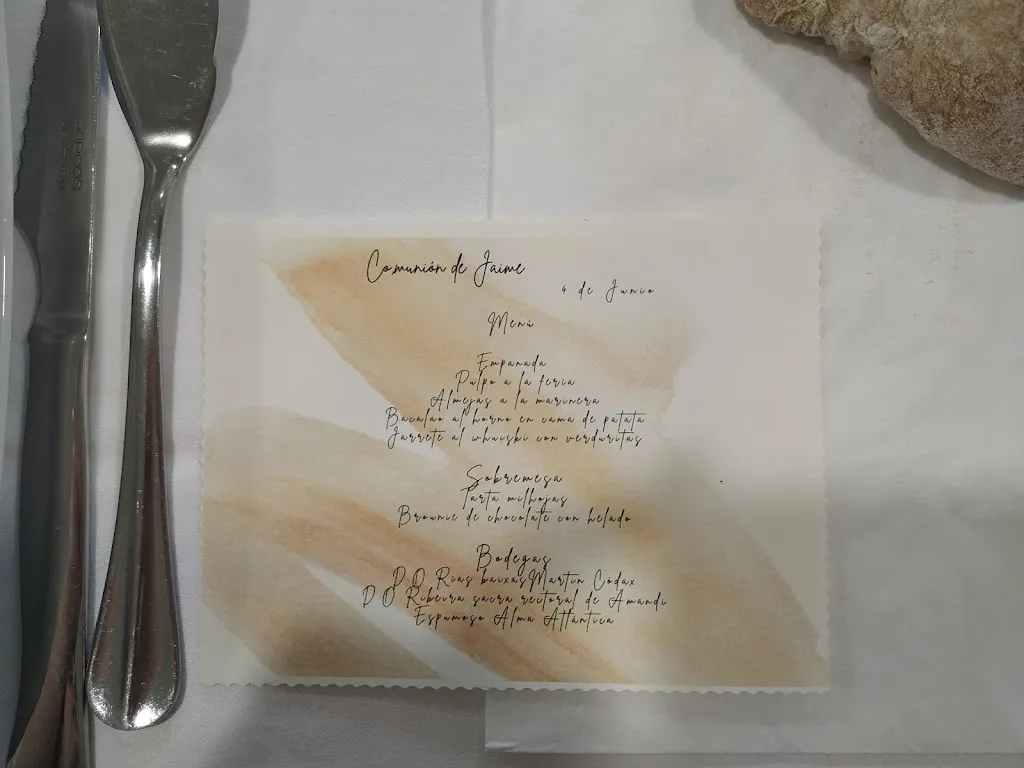 Comunión de Jaime
4 de Junio
Menú
Empanada
Pulpo a la feria
Almejas a la marinera
Bacalao al horno en cama de patata
Jarrete al whuiski con verduritas
Sobremesa
Tarta milhojas
Brownie de chocolate con helado
Bodegas
D O Rias baixas Martin Códax
D O Ribeira sacra rectoral de Amandi
Espumoso Alma Atlántica